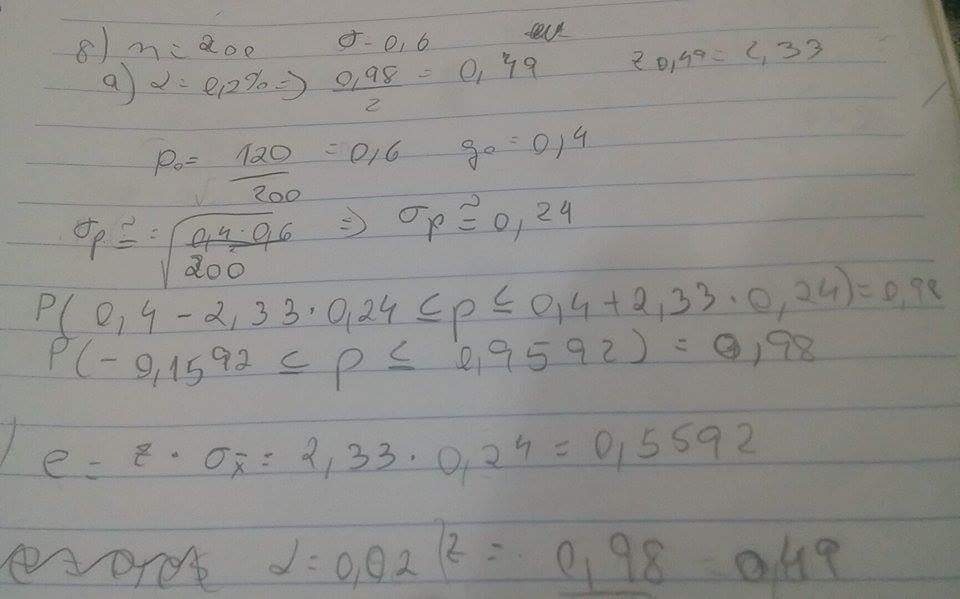 8) n = 200 σ = 0,6
a) α = 0,2% => 0,98/2 = 0,49 z0,49 = 2,33
p₀ = 120/200 = 0,6 q₀ = 0,4
σp ≅ = √(0,4·0,6/200) => σp ≅ 0,24
P(0,4 - 2,33·0,24 ≤ p ≤ 0,4 + 2,33·0,24) = 0,98
P(-0,1592 ≤ p ≤ 0,9592) = 0,98
e = z · σx̄ = 2,33 · 0,24 = 0,5592
α = 0,02 | z = 0,98 0,49